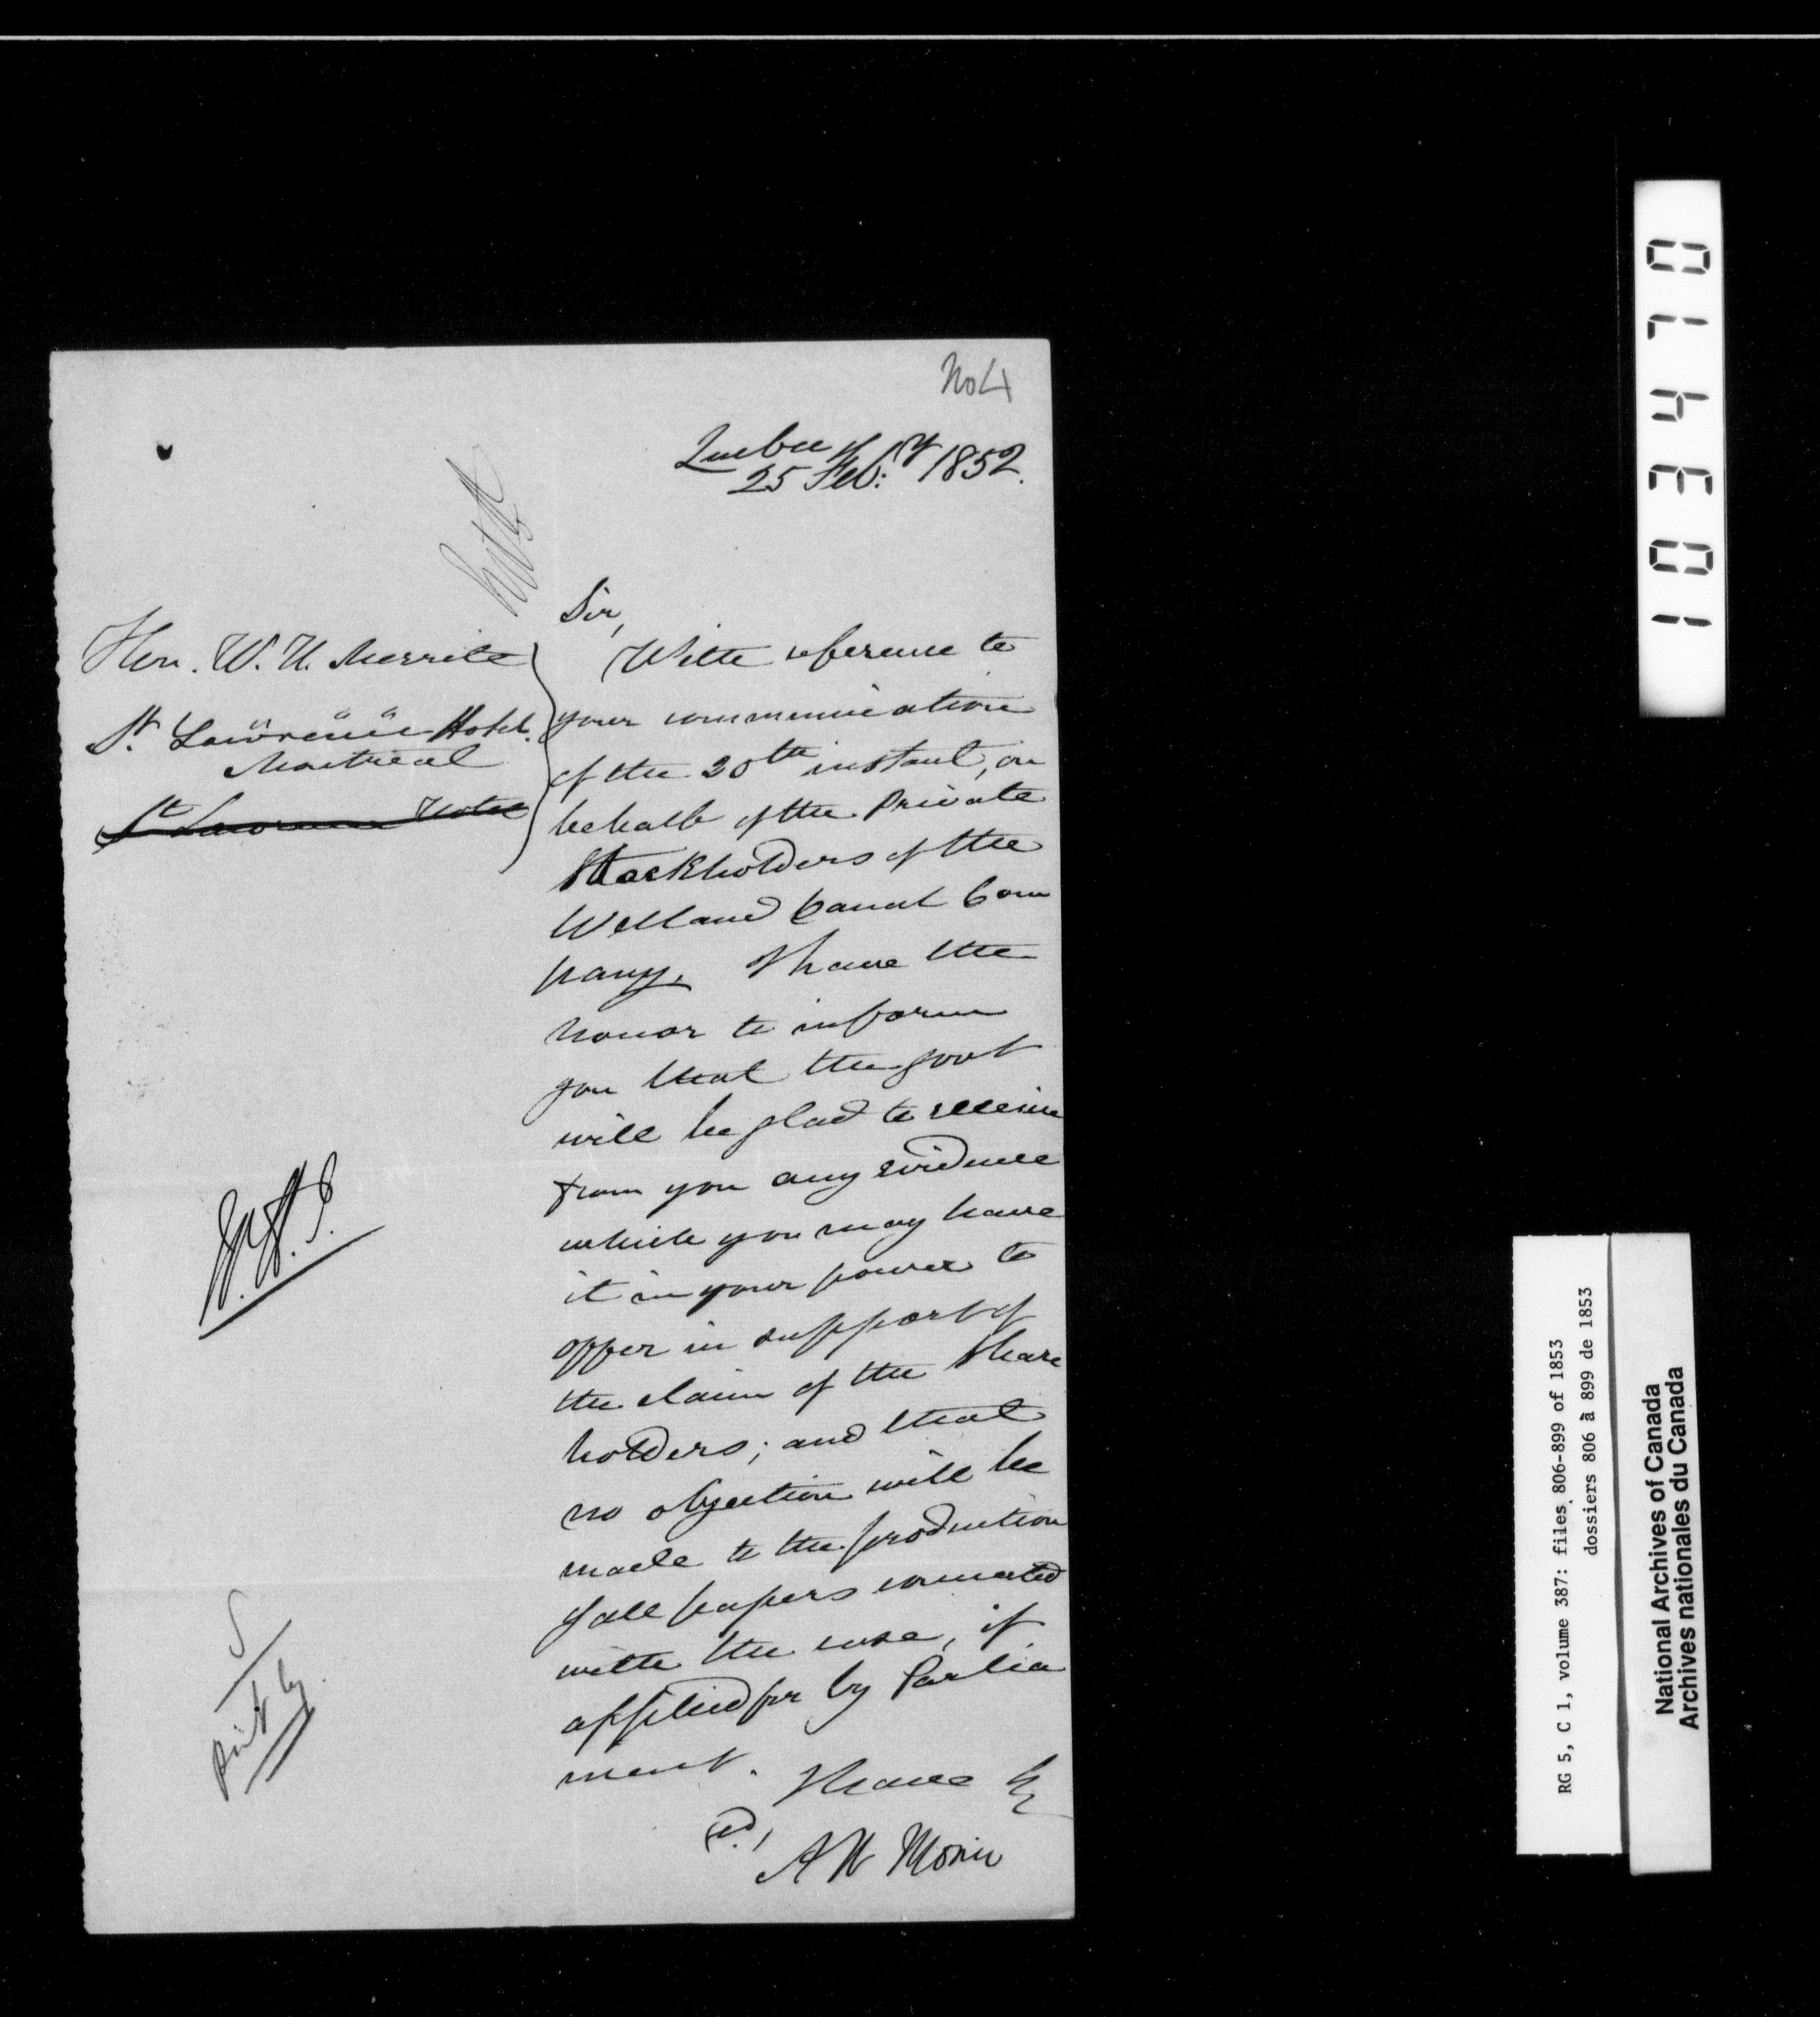 No 4
Quebec
25 Feb:ry 1852.
Hon. W. H. Merritt
St. Lawrence Hotel.
Montreal
St Lawrence Hotel
Sir,
With reference to
your communication
of the 20th instant, on
behalf of the Private
Stockholders of the
Welland Canal Com
pany, I have the
honor to inform
you that the Govt
will be glad to receive
from you any evidence
which you may have
it in your power to
offer in support of
the claim of the Share
holders; and that
no objection will be
made to the production
of all papers connected
with the case, if
applied for by Parlia
ment. I have &c
A N Morin
103470
RG 5, C 1, volume 387: files 806-899 of 1853
dossiers 806 à 899 de 1853
National Archives of Canada
Archives nationales du Canada